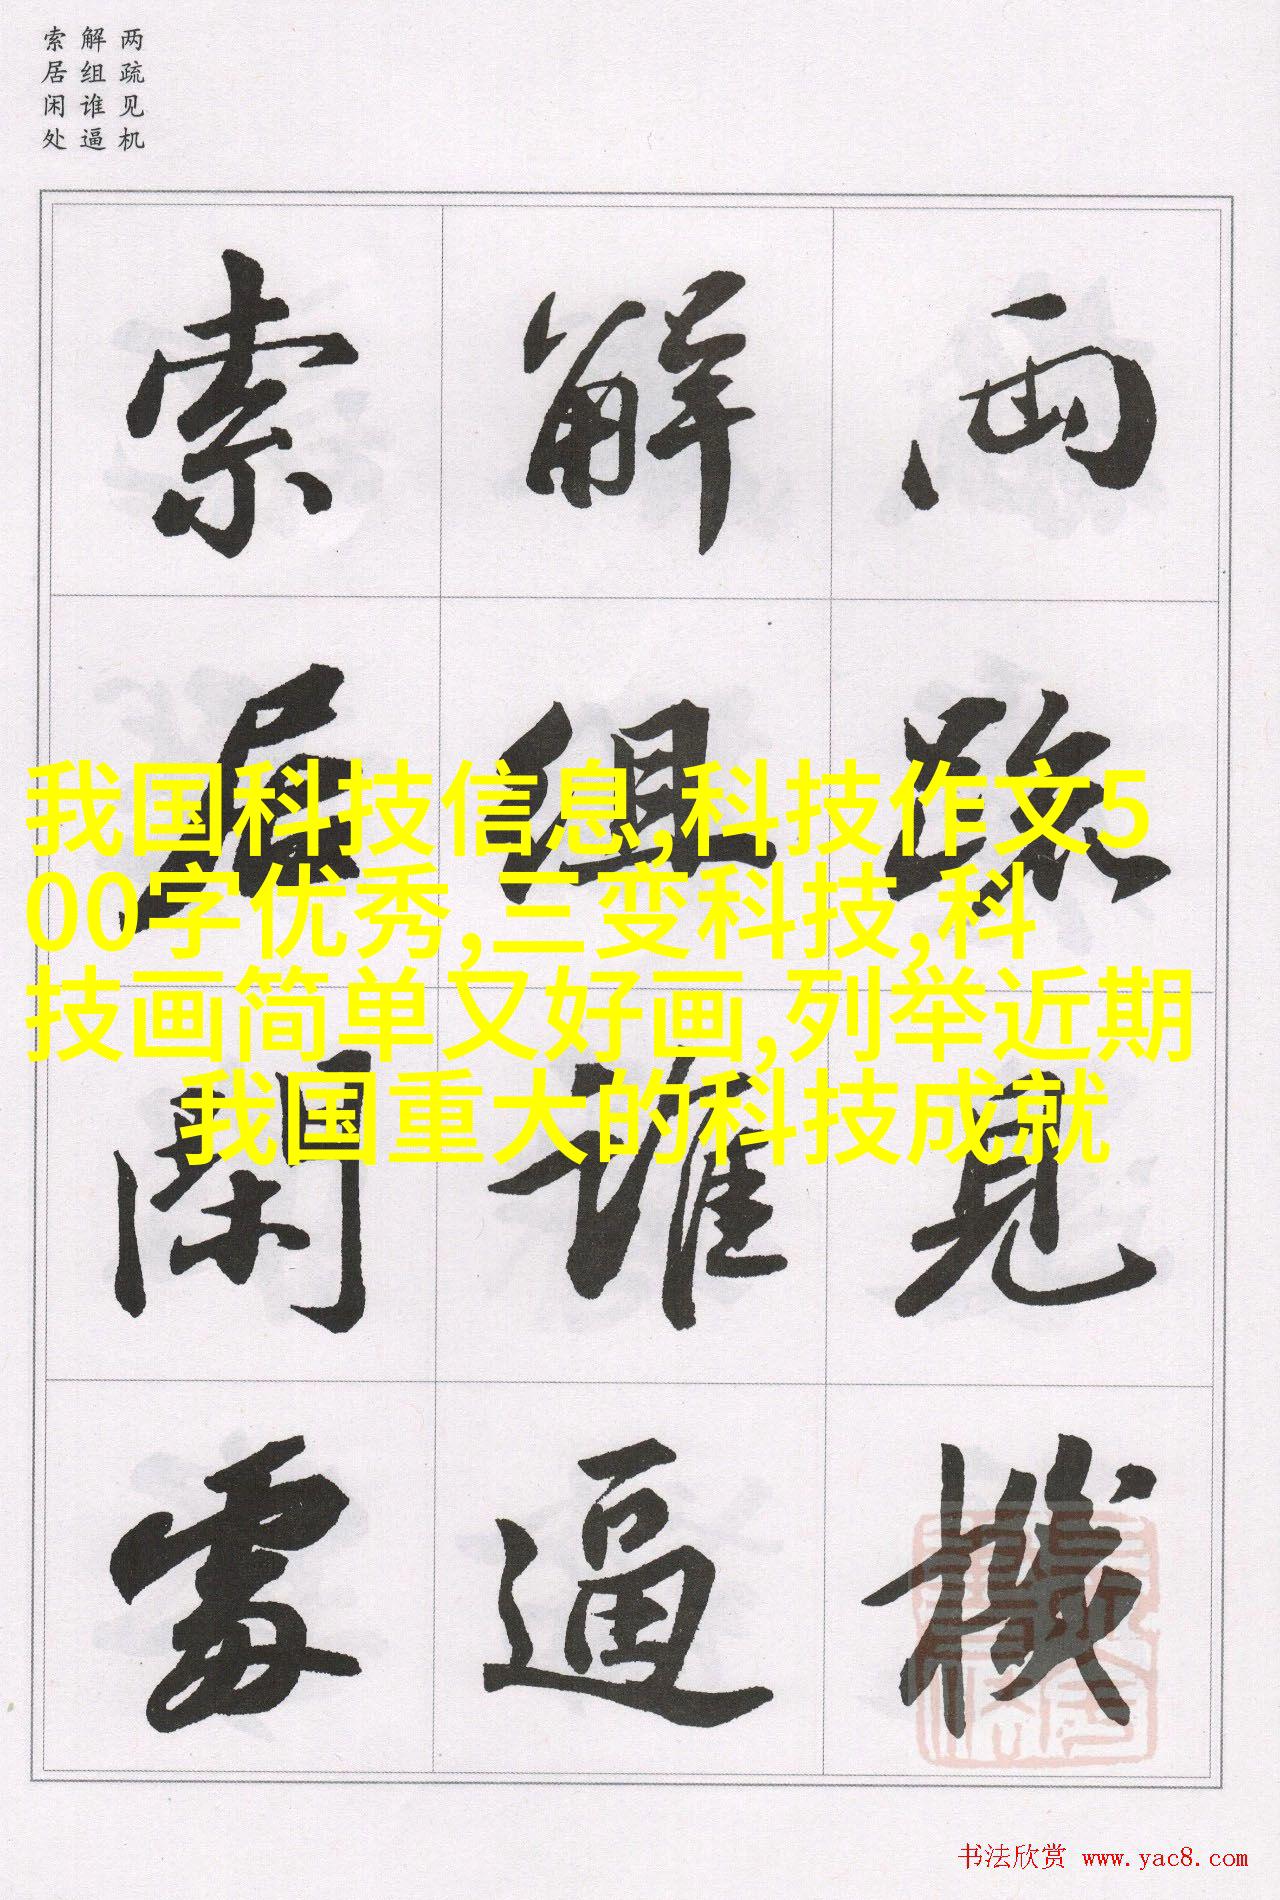 两疏见机
解组谁逼
索居闲处
兩疏見機
解組誰逼
索居閑處
我国科技信息,科技作文5
00字优秀,三变科技,科
技画简单又好画,列举近期
我国重大的科技成就
书法欣赏 www.yac8.com